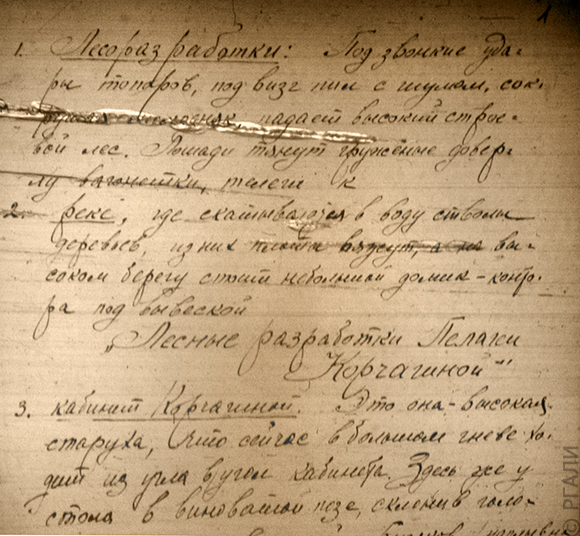 1
1. Лесоразработки: Под звонкие уда-
ры топоров, под визг пил с шумом, сок-
рушая молодняк, падает высокий строе-
вой лес. Лошади тянут гружёные довер-
ху вагонетки, телеги к
2. реке, где скатываются в воду стволы
деревьев, из них плоты вяжут, а на вы-
соком берегу стоит небольшой домик-конто-
ра под вывеской
„Лесные разработки Пелагеи
Корчагиной"
3. кабинет Корчагиной. Это она - высокая
старуха, что сейчас в большом гневе хо-
дит из угла в угол кабинета. Здесь же у
стола в виноватой позе, склонив голо-
© РГАЛИ